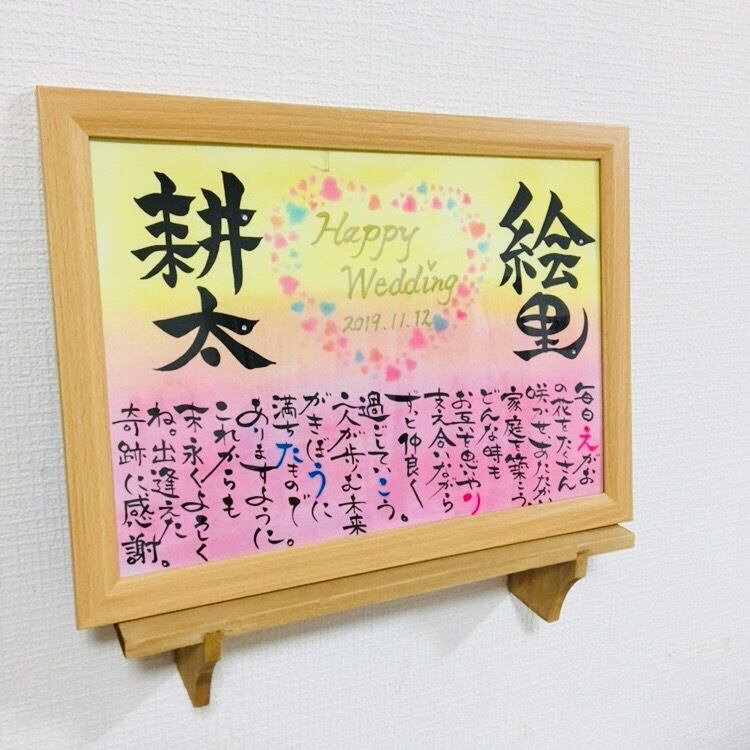 絵里
Happy
Wedding
2019.11.12
耕太
毎日えがお
の花をたくさん
咲かせあたたかい
家庭を築こう。
どんな時も
お互いを思いやり
支え合いながら
ずっと仲良く。
過ごしていこう
二人が歩む未来
がきぼうに
満ちたもので。
ありますように
これからも
末永くよろしく
ね。出逢えた
奇跡に感謝。